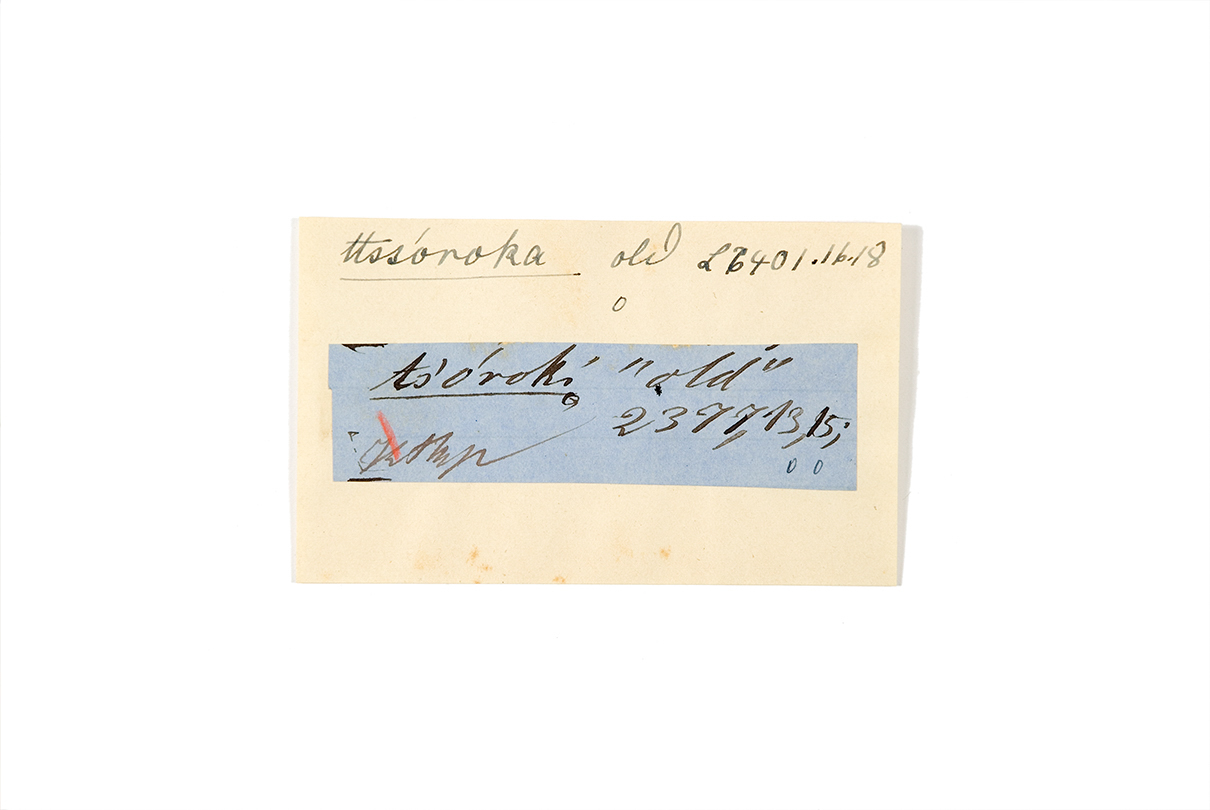 ttssóroka old L 6401.16.18
o
tsóroki "old"
2377,13,15;
o o